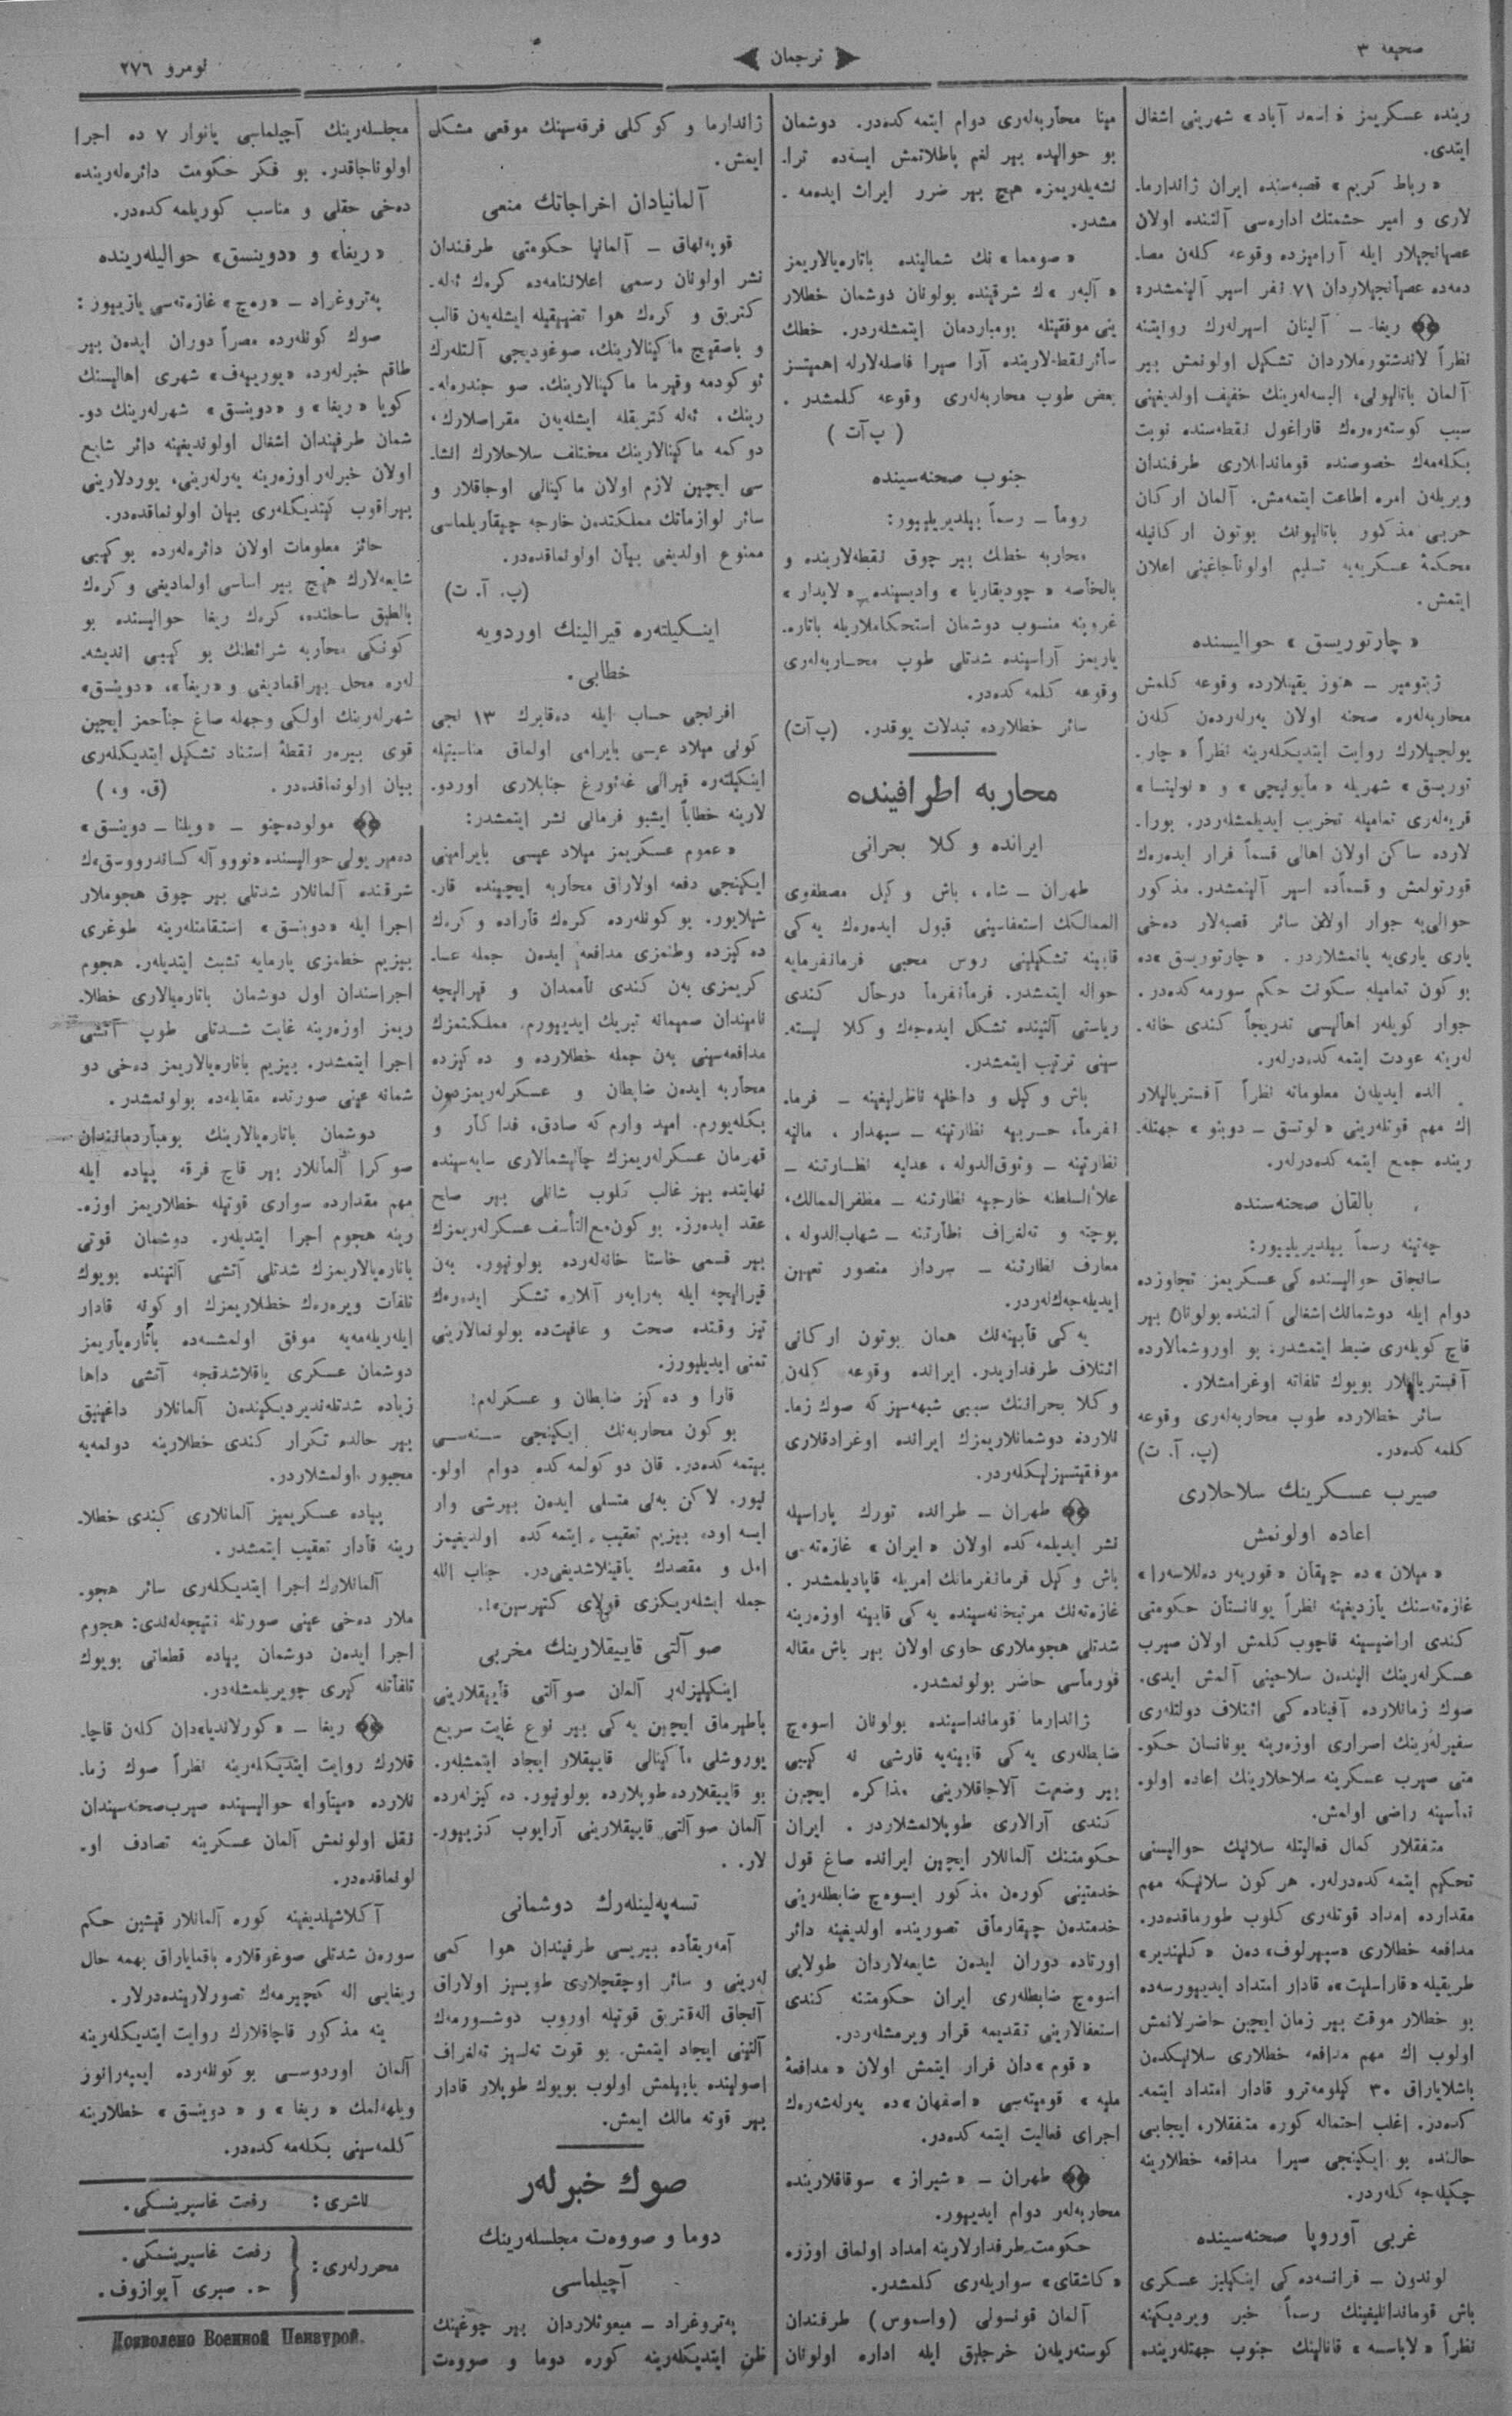 صحیفه ٣
ترجمان
نومرو ٢٧٦
رینده عسكریمز « اسعد آباد » شهرینی اشغال
ایتدی.
« رباط كریم » قصبه‌سنده ایران ژاندارما-
لاری و امیر حشمتك اداره‌سی آلتنده اولان
عصیانجیلار ایله آرامیزده وقوعه كله‌ن مصا-
دمه‌ده عصیانجیلاردان ٧١ نفر اسیر آلینمشدر.
ریغا ـ آلینان اسیرله‌رك روایتنه
نظراً لاندشتورملاردان تشكیل اولونمش بیر
آلمان باتالیونی، البسه‌له‌رینك خفیف اولدیغینی
سبب كوسته‌ره‌رك قاراغول نقطه‌سنده نوبت
بكله‌مه‌ك خصوصنده قوماندانلاری طرفندان
ویریله‌ن امره اطاعت ایتمه‌مش. آلمان اركان
حربی مذكور باتالیونك بوتون اركانیله
محكمهٔ عسكریه‌یه تسلیم اولوناجاغینی اعلان
ایتمش.
« چارتوریسق » حوالیسنده
ژیتومیر ـ هنوز یقینلارده وقوعه كلمش
محاربه‌له‌ره صحنه اولان یه‌رله‌رده‌ن كله‌ن
یولجیلارك روایت ایتدیكله‌رینه نظراً « چار-
توریسق » شهریله « مایونیچی » و « نولیتسا »
قریه‌له‌ری تمامیله تخریب ایدیلمشله‌ردر. بورا-
لارده ساكن اولان اهالی قسماً فرار ایده‌ره‌ك
قورتولمش و قسماً‌ده اسیر آلینمشدر. مذكور
حوالی‌یه جوار اولان سائر قصبه‌لار ده‌خی
یاری یاری‌یه یانمشلاردر. « چارتوریسق »ده
بو كون تمامیله سكونت حكم سورمه كده‌در.
جوار كویله‌ر اهالیسی تدریجاً كندی خانه-
له‌رینه عودت ایتمه كده‌درله‌ر.
الده ایدیله‌ن معلوماته نظراً آفستریالیلار
اك مهم قوتله‌رینی « لوتسق ـ دوبنو » جهتله-
رینده جمع ایتمه كده‌درله‌ر.
بالقان صحنه‌سنده
چه‌تینه رسماً بیلدیریلییور:
سانجاق حوالیسنده كی عسكریمز تجاوزده
دوام ایله دوشمانك اشغالی آلتنده بولونان بیر
قاچ كویله‌ری ضبط ایتمشدر. بو اوروشمالارده
آفستریالیلار بویوك تلفاته اوغرامشلار.
سائر خطلارده طوپ محاربه‌له‌ری وقوعه
كلمه كده‌در. (پ. آ. ت)
صیرب عسكرینك سلاحلاری
اعاده اولونمش
« میلان » ده چیقان « قوریه‌ر ده‌للاسه‌را »
غازه‌ته‌سنك یازدیغینه نظراً یونانستان حكومتی
كندی اراضیسینه قاچوب كلمش اولان صیرب
عسكرله‌رینك الینده‌ن سلاحینی آلمش ایدی.
صوك زمانلارده آفیناده كی ائتلاف دولتله‌ری
سفیرله‌رینك اصراری اوزه‌رینه یونانستان حكو-
متی صیرب عسكرینه سلاحلارینك اعاده اولو-
نماسینه راضی اولمش.
متفقلار كمال فعالیتله سلانیك حوالیسنی
تحكیم ایتمه كده‌درله‌ر. هر كون سلانیكه مهم
مقدارده امداد قوتله‌ری كلوب طورماقده‌در.
مدافعه خطلاری «سیپرلوف» ده‌ن «كلیندیر»
طریقیله «قاراسلیت»ه قادار امتداد ایدییورسه‌ده
بو خطلار موقت بیر زمان ایچین حاضرلانمش
اولوب اك مهم مدافعه خطلاری سلانیكده‌ن
باشلایاراق ٣٠ كیلومه‌ترو قادار امتداد ایتمه-
كده‌در. اغلب احتماله كوره متفقلار، ایجابی
حالنده بو ایكینجی صیرا مدافعه خطلارینه
چكیله‌جه كله‌ردر.
غربی آوروپا صحنه‌سینده
لوندون ـ فرانسه‌ده كی اینكلیز عسكری
باش قوماندانلیغینك رسماً خبر ویردیكینه
نظراً « لاباسسه » قانالینك جنوب جهتله‌رینده
مینا محاربه‌له‌ری دوام ایتمه كده‌در. دوشمان
بو حوالیده بیر لغم پاطلاتمش ایسه‌ده ترا-
نشه‌یله‌ریمزه هیچ بیر ضرر ایراث ایده‌مه-
مشدر.
« صومما » نك شمالینده باتاره‌یالاریمز
« آلبه‌ر »ك شرقینده بولونان دوشمان خطلار
ینی موفقیتله بومباردمان ایتمشله‌ردر. خطك
سائر نقطه‌لارینده آرا صیرا فاصله‌لارله اهمیتسز
بعض طوپ محاربه‌له‌ری وقوعه كلمشدر.
(پ آت)
جنوب صحنه‌سینده
روما ـ رسماً بیلدیریلییور:
محاربه خطك بیر چوق نقطه‌لارینده و
بالخاصه « جودیقاریا » وادیسینده « لایدار »
غروپنه منسوب دوشمان استحكاملاریله باتاره-
یاریمز آراسینده شدتلی طوپ محـاربه‌له‌ری
وقوعه كلمه كده‌در.
سائر خطلارده تبدلات یوقدر. (پ آت)
محاربه اطرافینده
ایرانده وكلا بحرانی
طهران ـ شاه، باش وكیل مصطفوی
الممالكك استعفاسینی قبول ایده‌ره‌ك یه‌كی
قابینه تشكیلینی روس محبی فرمانفرمایه
حواله ایتمشدر. فرمانفرما درحال كندی
ریاستی آلتینده تشكل ایده‌جه‌ك وكلا لیسته-
سینی ترتیب ایتمشدر.
باش وكیل و داخلیه ناظرلیغینه ـ فرما-
نفرما، حـربیه نظارتینه ـ سپهدار، مالیه
نظارتینه ـ وثوق‌الدوله، عدلیه نظـارتنه ـ
علأالسلطنه خارجیه نظارتنه ـ مظفرالممالك،
پوچته و ته‌لغراف نظارتنه ـ شهاب‌الدوله،
معارف نظارتنه ـ سردار منصور تعیین
ایدیله‌جه‌كله‌ردر.
یه كی قابینه‌نك همان بوتون اركانی
ائتلاف طرفداریدر. ایرانده وقوعه كله‌ن
وكلا بحراننك سببی شبهه‌سیز كه صوك زما-
نلارده دوشمانلاریمزك ایرانده اوغرادقلاری
موفقیتسزلیكله‌ردر.
طهران ـ طرانده تورك پاراسیله
نشر ایدیلمه كده اولان « ایران » غازه‌ته‌سی
باش وكیل فرمانفرمانك امریله قاپادیلمشدر.
غازه‌ته‌نك مرتبخانه‌سینده یه كی قابینه اوزه‌رینه
شدتلی هجوملاری حاوی اولان بیر باش مقاله
فورماسی حاضر بولونمشدر.
ژاندارما قومانداسینده بولونان اسوه‌چ
ضابطله‌ری یه كی قابینه‌یه قارشی نه كیبی
بیر وضعیت آلاجاقلارینی مذاكره ایچین
كندی آرالاری طوپلانمشلاردر. ایران
حكومتنك آلمانلار ایچین ایرانده صاغ قول
خدمتینی كوره‌ن مذكور ایسوه‌چ ضابطله‌رینی
خدمتده‌ن چیقارماق تصورینده اولدیغینه دائر
اورتاده دوران ایده‌ن شایعه‌لاردان طولایی
اسوه‌چ ضابطله‌ری ایران حكومتنه كندی
استعفالارینی تقدیمه قرار ویرمشله‌ردر.
« قوم » دان فرار ایتمش اولان « مدافعهٔ
ملیه » قومیته‌سی « اصفهان »ده یه‌رله‌شه‌ره‌ك
اجرای فعالیت ایتمه كده‌در.
طهران ـ « شیراز » سوقاقلارینده
محاربه‌له‌ر دوام ایدییور.
حكومت طرفدارلارینه امداد اولماق اوزره
« كاشقای » سواریله‌ری كلمشدر.
آلمان قونسولی (واسموس) طرفندان
كوسته‌ریله‌ن خرجلیق ایله اداره اولونان
ژاندارما و كوكلی فرقه‌سینك موقعی مشكل
ایمش.
آلمانیادان اخراجاتك منعی
قوپه‌نهاق ـ آلمانیا حكومتی طرفندان
نشر اولونان رسمی اعلاننامه‌ده كره‌ك ئه‌له-
كتریق و كره‌ك هوا تضییقیله ایشله‌یه‌ن قالب
و باصقیچ ماكینالارینك، صوغودیجی آلتله‌رك
ئوكودمه وقیرما ماكینالارینك، صو جندره‌له-
رینك، ئه‌له كتریقله ایشله‌یه‌ن مقراصلارك،
دوكمه ماكینالارینك مختلف سلاحلارك انشا-
سی ایچین لازم اولان ماكینالی اوجاقلار و
سائر لوازماتك مملكتده‌ن خارجه چیقاریلماسی
ممنوع اولدیغی بیان اولونماقده‌در.
(پ. آ. ت)
اینـكیلته‌ره قیرالینك اوردویه
خطابی.
افرنجی حساب ایله ده‌قابرك ١٣ نجی
كونی میلاد عیسی بایرامی اولماق مناسبتیله
اینكیلته‌ره قیرالی غه‌ئورغ جنابلاری اوردو-
لارینه خطاباً ایشبو فرمانی نشر ایتمشدر:
« عموم عسكریمز میلاد عیسی بایرامینی
ایكینجی دفعه اولاراق محاربه ایچینده قار-
شیلایور. بو كونله‌رده كره‌ك قاراده و كره‌ك
ده‌كیزده وطنمزی مدافعه ایده‌ن جمله عسا-
كریمزی به‌ن كندی نأممدان و قیرالیچه
نامیندان صمیمانه تبریك ایدییورم. مملكتمزك
مدافعه‌سینی به‌ن جمله خطلارده و ده‌كیزده
محاربه ایده‌ن ضابطان و عسكرله‌ریمزده‌ن
بكله‌یورم. امید وارم كه صادق، فداكار و
قهرمان عسكرله‌ریمزك چالیشمالاری سایه‌سینده
نهایتده بیز غالب كلوب شانلی بیر صلح
عقد ایده‌رز. بو كون مع‌التأسف عسكرله‌ریمزك
بیر قسمی خاستا خانه‌له‌رده بولونیور. به‌ن
قیرالیچه ایله به‌رابه‌ر آنلاره تشكر ایده‌ره‌ك
تیز وقتده صحت و عافیت‌ده بولونمالارینی
تمنی ایدییورز.
قارا و ده‌كیز ضابطان و عسكرله‌م!
بو كون محاربه‌نك ایكینجی سـنه‌سـی
بیتمه كده‌در. قان دوكولمه كده دوام اولو-
نیور. لاكن به‌نی متسلی ایده‌ن بیرشی وار
ایسه اوده بیزیم تعقیب ایتمه كده اولدیغیمز
امل و مقصدك یاقینلاشدیغی‌در. جناب الله
جمله ایشله‌ریكزی قولای كتیرسین»!.
صو آلتی قاییقلارینك مخربی
اینكلیزله‌ر آلمان صو آلتی قاییقلارینی
باطیرماق ایچین یه كی بیر نوع غایت سریع
یوروشلی ماكینالی قاییقلار ایجاد ایتمشله‌ر.
بو قاییقلارده طوپلارده بولونیور. ده‌كیزله‌رده
آلمان صو آلتی قاییقلارینی آرایوب كزییور-
لار.
تسه‌په‌لینله‌رك دوشمانی
آمه‌ریقاده بیریسی طرفیندان هوا كمی
له‌رینی و سائر اوچقیچلاری طوپسز اولاراق
آنجاق اله‌قتریق قوتیله اوروب دوشـورمه‌ك
آلتینی ایجاد ایتمش. بو قوت ته‌لسز ته‌لغراف
اصولینده یاپیلمش اولوب بویوك طوپلار قادار
بیر قوته مالك ایمش.
صوك خبرله‌ر
دوما و صووه‌ت مجلسله‌رینك
آچیلماسی
په‌تروغراد ـ مبعوثلاردان بیر چوغینك
ظن ایتدیكله‌رینه كوره دوما و صووه‌ت
مجلسله‌رینك آچیلماسی یانوار ٧ ده اجرا
اولوناجاقدر. بو فكر حكومت دائره‌له‌رینده
ده‌خی حقلی و مناسب كوریلمه كده‌در.
«ریغا» و «دوینسق» حوالیله‌رینده
په‌تروغراد ـ «ره‌چ» غازه‌ته‌سی یازییور:
صوك كونله‌رده مصراً دوران ایده‌ن بیر
طاقم خبرله‌رده «یورییه‌ف» شهری اهالیسنك
كویا «ریغا» و «دوینسق» شهرله‌رینك دو-
شمان طرفیندان اشغال اولوندیغینه دائر شایع
اولان خبرله‌ر اوزه‌رینه یه‌رله‌رینی، یوردلارینی
بیراقوب كیتدیكله‌ری بیان اولونماقده‌در.
حائز معلومات اولان دائره‌له‌رده بو كیبی
شایعه‌لارك هیچ بیر اساسی اولمادیغی و كره‌ك
بالطیق ساحلنده، كره‌ك ریغا حوالیسنده بو
كونكی محاربه شرائطنك بو كیبی اندیشه-
له‌ره محل بیراقمادیغی و «ریغا»، «دوینسق»
شهرله‌رینك اولكی وجهله صاغ جناحمز ایچین
قوی بیره‌ر نقطهٔ استناد تشكیل ایتدیكله‌ری
بیان اولونماقده‌در. (ق. و.)
مولوده‌چنو ـ «ویلنا ـ دوینسق»
ده‌میر یولی حوالیسنده «نووو آله كساندرووسق»ك
شرقنده آلمانلار شدتلی بیر چوق هجوملار
اجرا ایله «دوینسق» استقامتله‌رینه طوغری
بیزیم خطمزی یارمایه تشبث ایتدیله‌ر. هجوم
اجراسندان اول دوشمان باتاره‌یالاری خطلا-
ریمز اوزه‌رینه غایت شـدتلی طوپ آتشی
اجرا ایتمشدر. بیزیم باتاره‌یالاریمز ده‌خی دو
شمانه عینی صورتده مقابله‌ده بولونمشدر.
دوشمان باتاره‌یالارینك بومباردمانندان
صوكرا آلمانلار بیر قاچ فرقه پیاده ایله
مهم مقدارده سواری قوتیله خطلاریمز اوزه-
رینه هجوم اجرا ایتدیله‌ر. دوشمان قوتی
باتاره‌یالاریمزك شدتلی آتشی آلتینده بویوك
تلفات ویره‌ره‌ك خطلاریمزك اوكونه قادار
ایله‌ریله‌مه‌یه موفق اولمشسه‌ده باتاره‌یاریمز
دوشمان عسكری یاقلاشدقجه آتشی داها
زیاده شدتله‌ندیردیكینده‌ن آلمانلار داغینیق
بیر حالده تكرار كندی خطلارینه دونمه‌یه
مجبور اولمشلاردر.
پیاده عسكریمیز آلمانلاری كندی خطلا-
رینه قادار تعقیب ایتمشدر.
آلمانلارك اجرا ایتدیكله‌ری سائر هجو-
ملار ده‌خی عینی صورتله نتیجه‌له‌ندی: هجوم
اجرا ایده‌ن دوشمان پیاده قطعاتی بویوك
تلفاتله كیری چویریلمشله‌در.
ریغا ـ «كورلاندیا»دان كله‌ن قاچا-
قلارك روایت ایتدیكله‌رینه نظراً صوك زما-
نلارده «میتاوا» حوالیسینده صیرب صحنه‌سیندان
نقل اولونمش آلمان عسكرینه تصادف او-
لونماقده‌در.
آكلاشیلدیغینه كوره آلمانلار قیشین حكم
سوره‌ن شدتلی صوغوقلاره باقمایاراق بهمه حال
ریغایی اله كچیرمه‌ك تصورلارینده‌درلار.
ینه مذكور قاچاقلارك روایت ایتدیكله‌رینه
آلمان اوردوسـی بو كونله‌رده ایمپه‌راتور
ویلهه‌لمك « ریغا » و « دوینسق » خطلارینه
كلمه‌سینی بكله‌مه كده‌در.
ناشری: رفعت غاسپرینسكی.
محررله‌ری: رفعت غاسپرینسكی.
ح. صبری آیوازوف.
Дозволено Военной Цензурой.